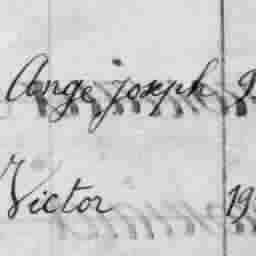 Ange joseph
Victor 19